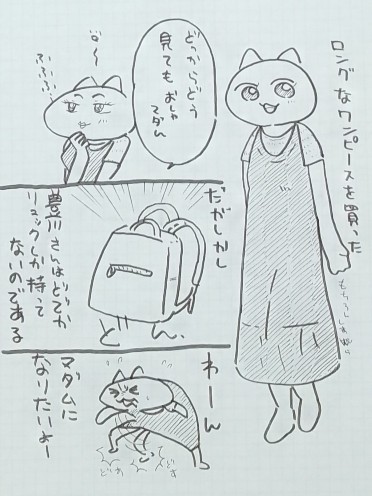 ロングなワンピースを買った
もちろんしまむら
どっからどう
見てもおしゃ
マダム
ふふふふ
だがしかし
豊川さんはどでか
リュックしか持って
ないのである
わーん
マダムに
なりたいよー
どす